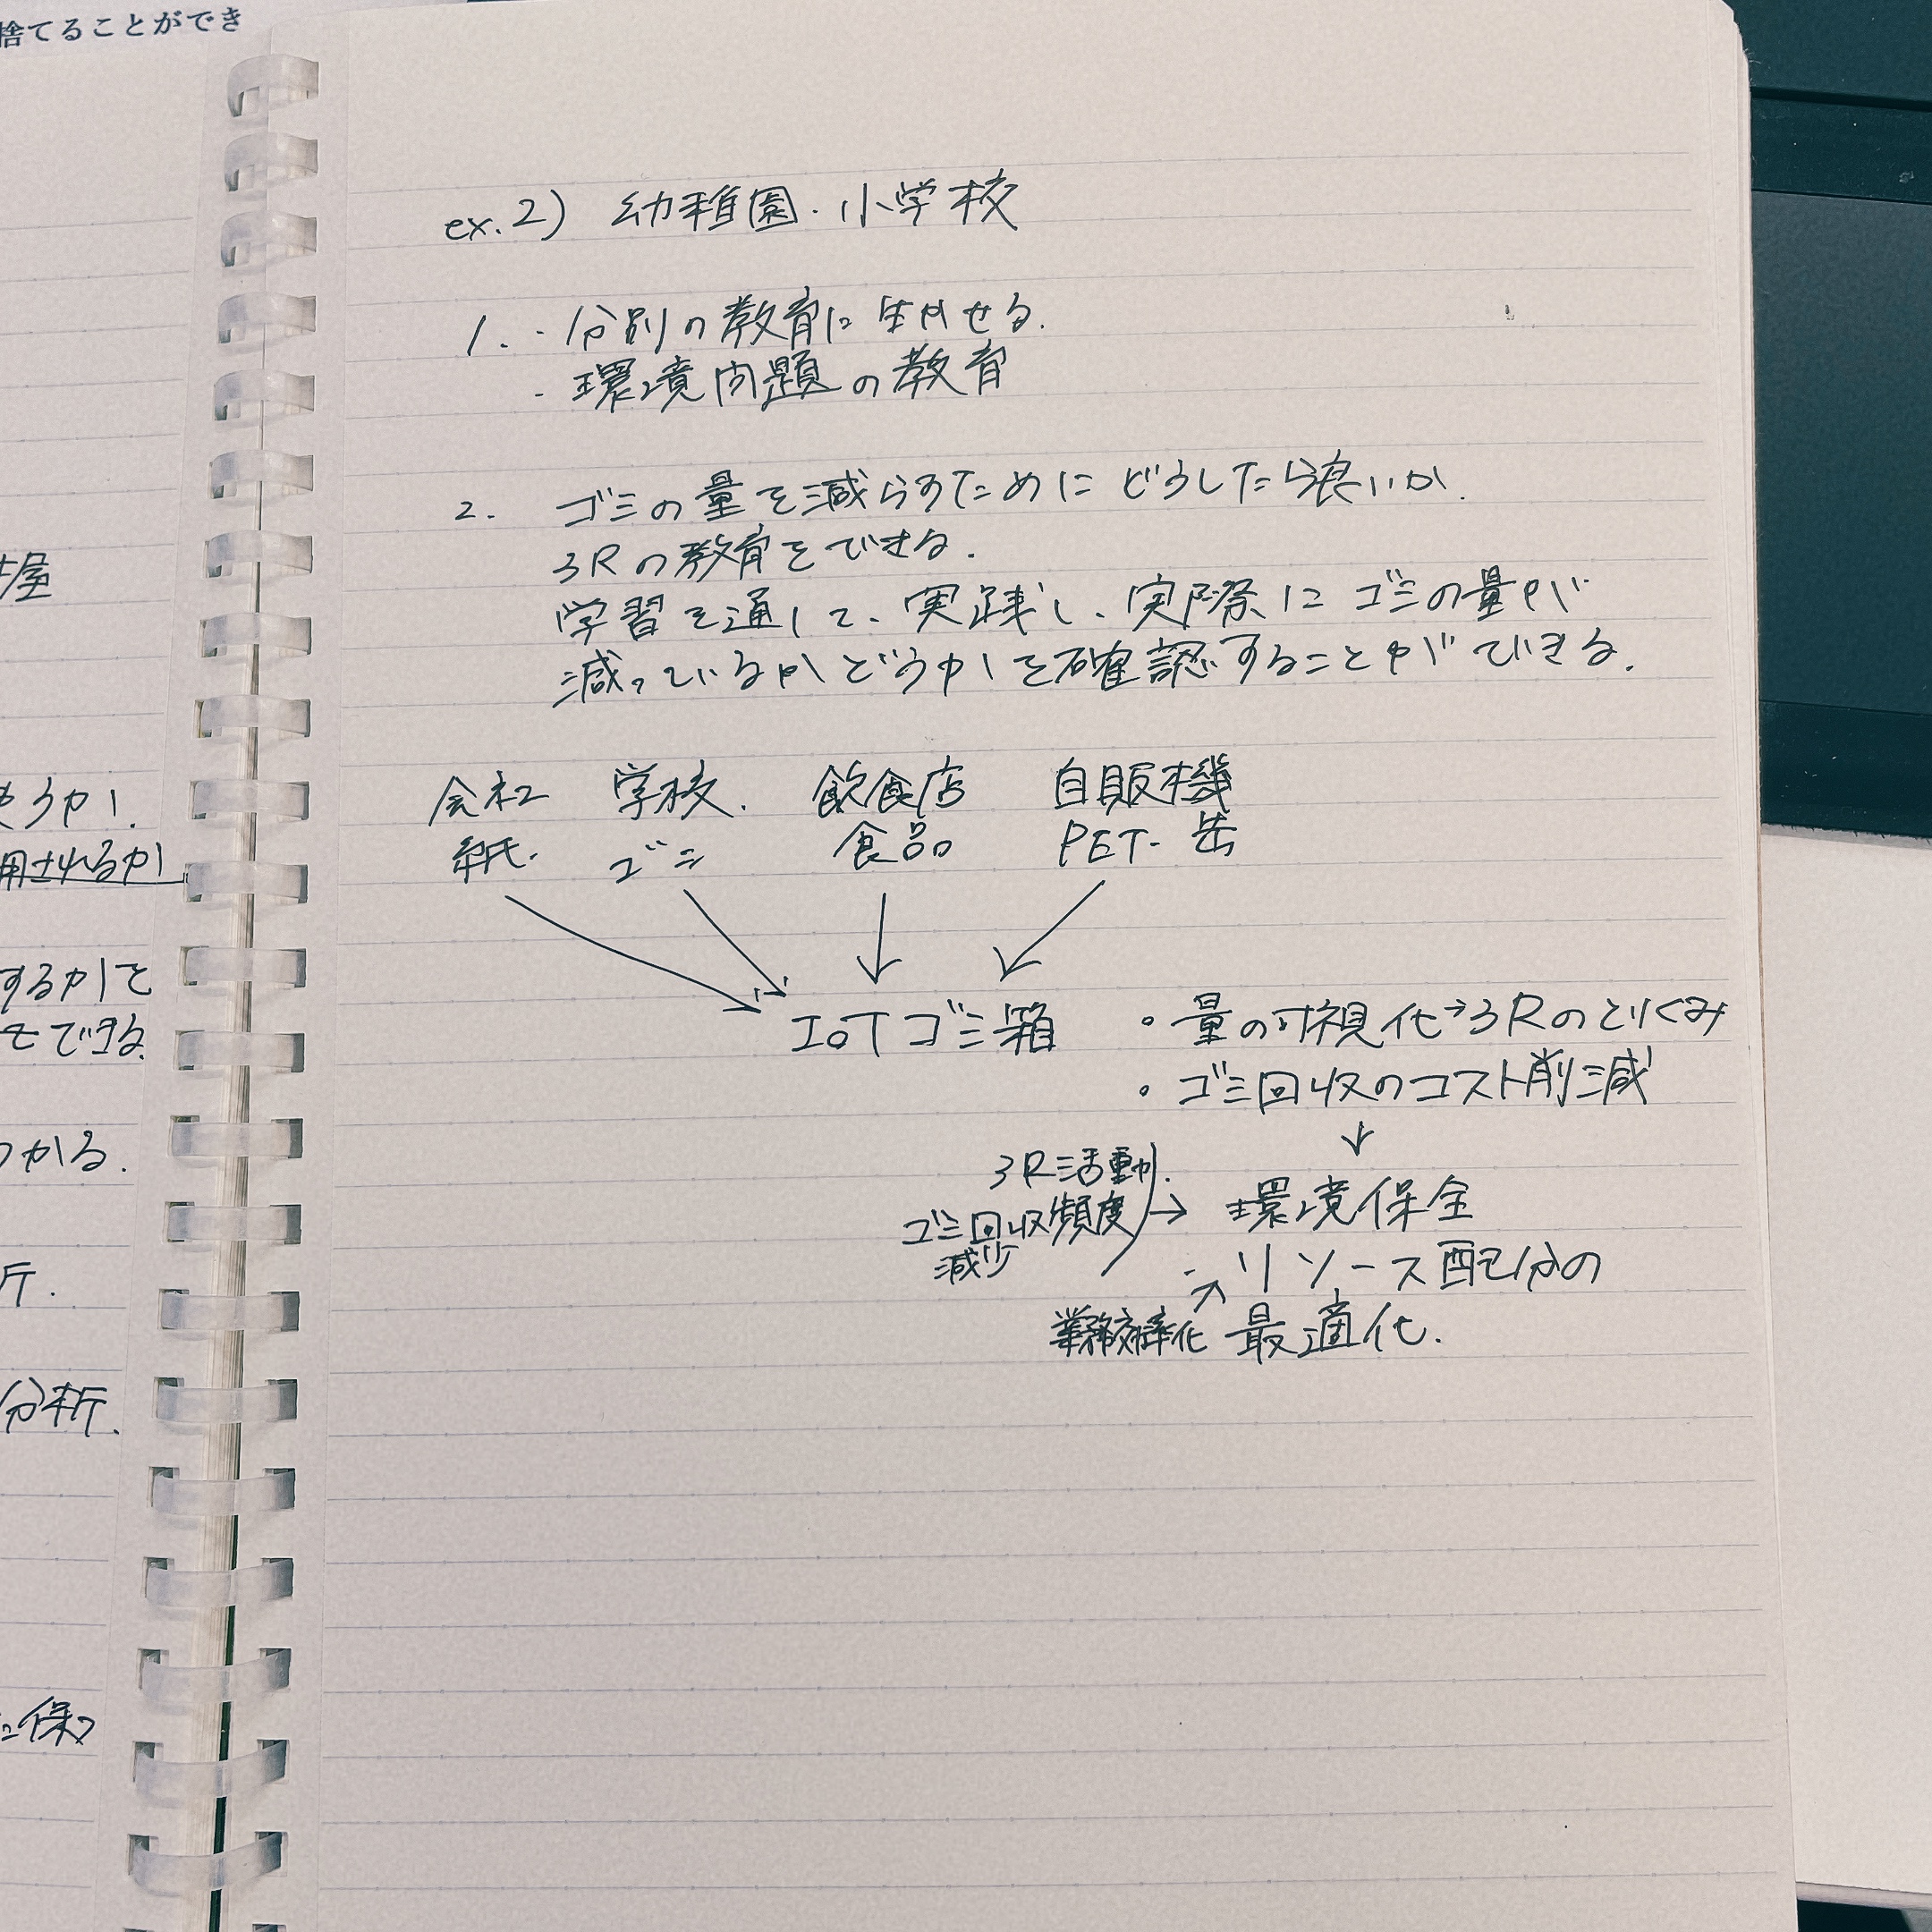 捨てることができ
屋
うか.
用されるか
するかを
をできる.
つかる.
斤.
分析.
に保つ
ex.2) 幼稚園・小学校
1. ・分別の教育に生かせる.
・環境問題の教育
2. ゴミの量を減らすためにどうしたら良いか.
3Rの教育をできる.
学習を通して、実践し、実際にゴミの量が
減っているかどうかを確認することができる.
会社 学校. 飲食店 自販機
紙. ゴミ 食品 PET・缶
IoTゴミ箱 ・量の可視化→3Rのとりくみ
・ゴミ回収のコスト削減
↓
3R活動.
ゴミ回収頻度 → 環境保全
減少
→リソース配分の
業務効率化 最適化.